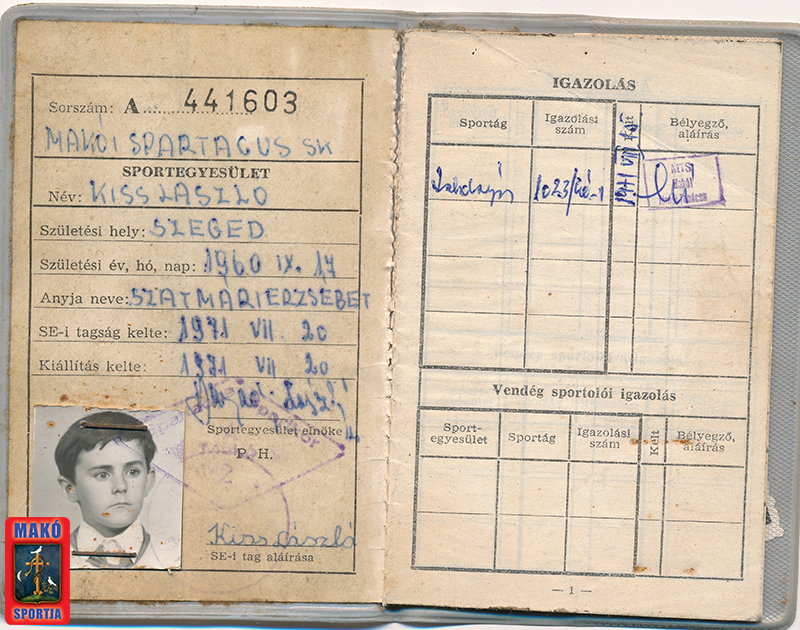 Sorszám: A 441603
MAKÓI SPARTACUS SK
SPORTEGYESÜLET
Név: KISS LÁSZLÓ
Születési hely: SZEGED
Születési év, hó, nap: 1960 IX. 17
Anyja neve: SZATMÁRI ERZSÉBET
SE-i tagság kelte: 1971 VII. 20
Kiállítás kelte: 1971 VII 20
Sportegyesület elnöke
P. H.
Kiss László
SE-i tag aláírása
MAKÓ
SPORTJA
IGAZOLÁS
Sportág
Igazolási szám
Kelt
Bélyegző, aláírás
Labdarúgás
1971 VIII
Vendég sportolói igazolás
Sport-egyesület
Sportág
Igazolási szám
Kelt
Bélyegző, aláírás
— 1 —